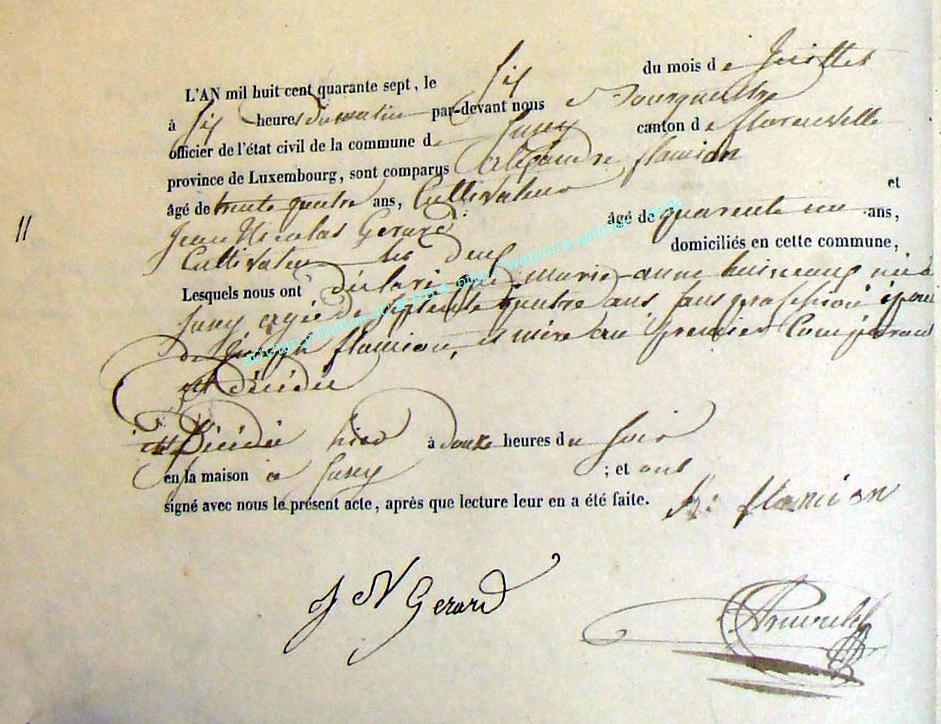 L'AN mil huit cent quarante sept, le Six du mois de Juillet
à Six heures du matin par-devant nous Bourgmestre
officier de l'état civil de la commune de Suxy canton de florenville
province de Luxembourg, sont comparus Alexandre flamion
âgé de trente quatre ans, Cultivateur et
11
Jean Nicolas Gerard âgé de quarente un ans,
Cultivateur les deux domiciliés en cette commune,
Lesquels nous ont déclaré que marie-anne née à
Suxy agée de septente quatre ans sans profession épouse
de Joseph flamion, et mère au premier Comparant
est décédée
est Décédée hier à douze heures du soir
en la maison à Suxy ; et ont
signé avec nous le présent acte, après que lecture leur en a été faite.
flamion
J N Gerard